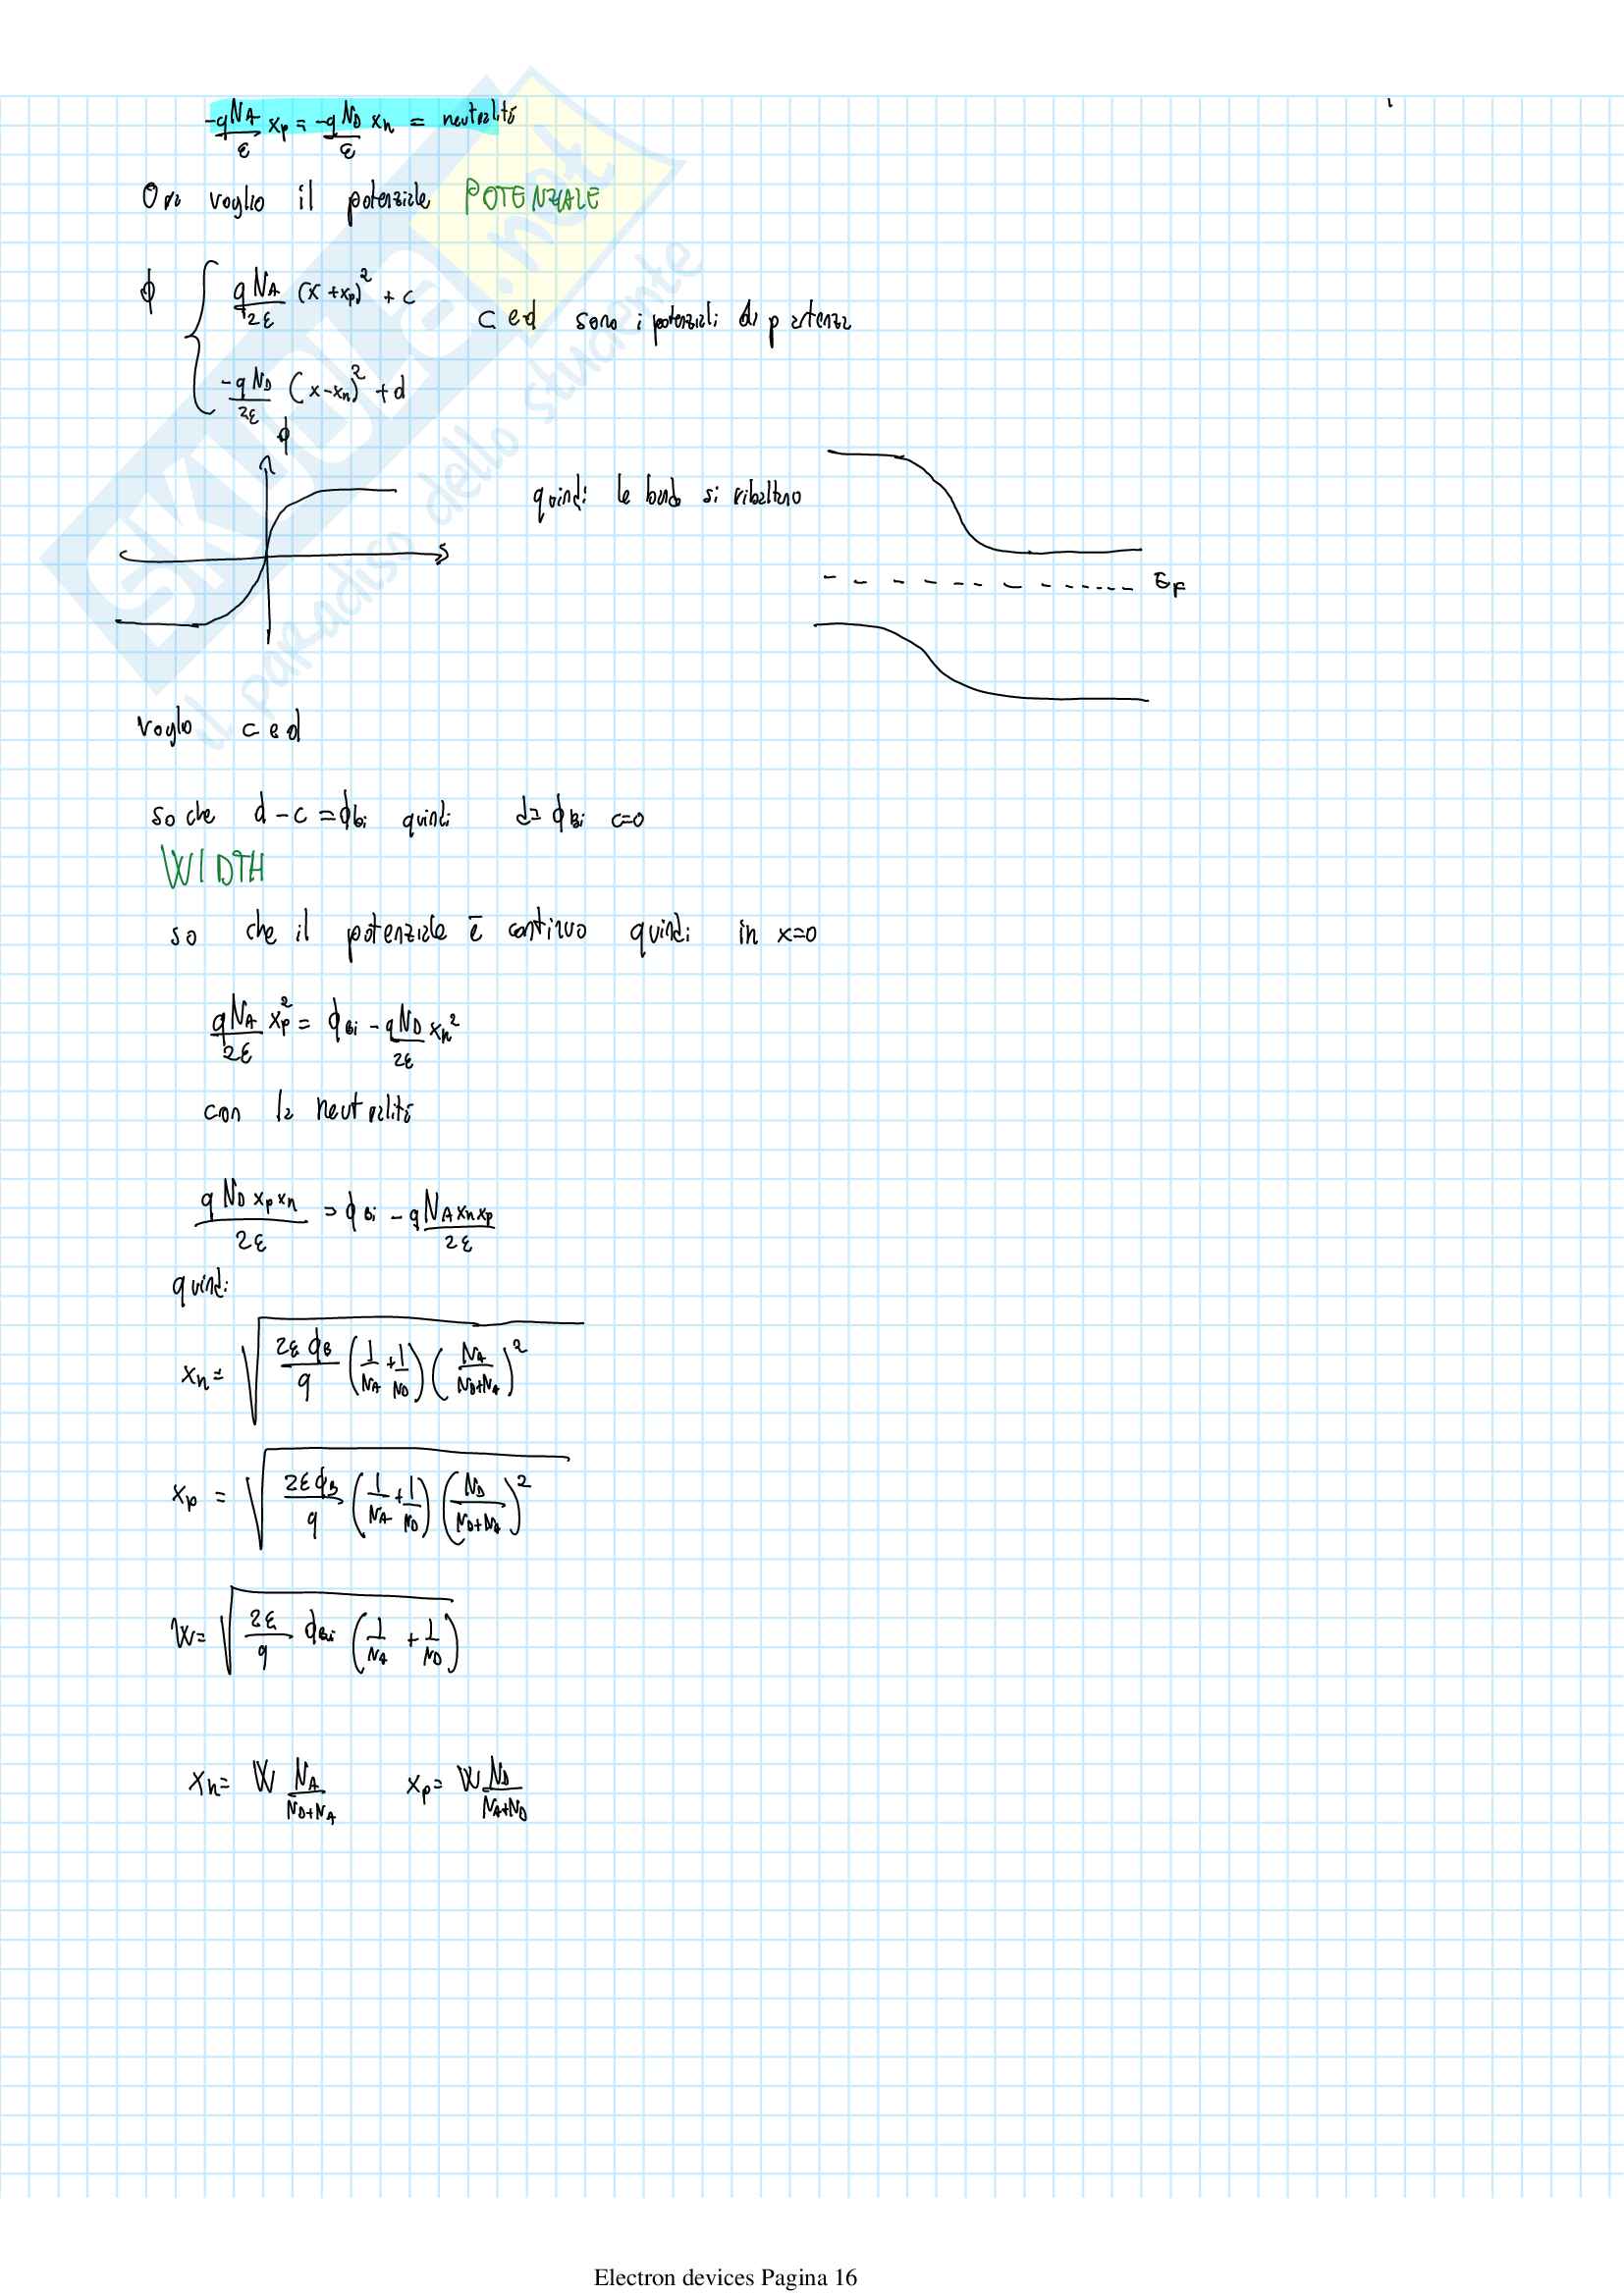 -qN_A/ε x_p = -qN_D/ε x_n = neutralità
Ora voglio il potenziale POTENZIALE
ϕ { qN_A/2ε (x+x_p)² + c
c e d sono i potenziali di partenza
-qN_D/2ε (x-x_n)² + d
ϕ
quindi le bande si ribaltano
E_F
voglio c e d
so che d-c=ϕ_bi quindi d=ϕ_Bi c=0
WIDTH
so che il potenziale è continuo quindi in x=0
qN_A/2ε x_p² = ϕ_Bi - qN_D/2ε x_n²
con la neutralità
qN_D x_p x_n/2ε = ϕ_Bi - qN_A x_n x_p/2ε
quindi
x_n = √(2εϕ_B/q (1/N_A + 1/N_D) (N_A/(N_D+N_A))²)
x_p = √(2εϕ_B/q (1/N_A + 1/N_D) (N_D/(N_D+N_A))²)
W = √(2ε/q ϕ_Bi (1/N_A + 1/N_D))
x_n = W N_A/(N_D+N_A) x_p = W N_D/(N_A+N_D)
Electron devices Pagina 16
SKUOLA.net
il paradiso dello studente